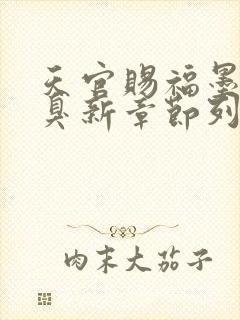 天官赐福墨
臭新章节列
肉末大茄子